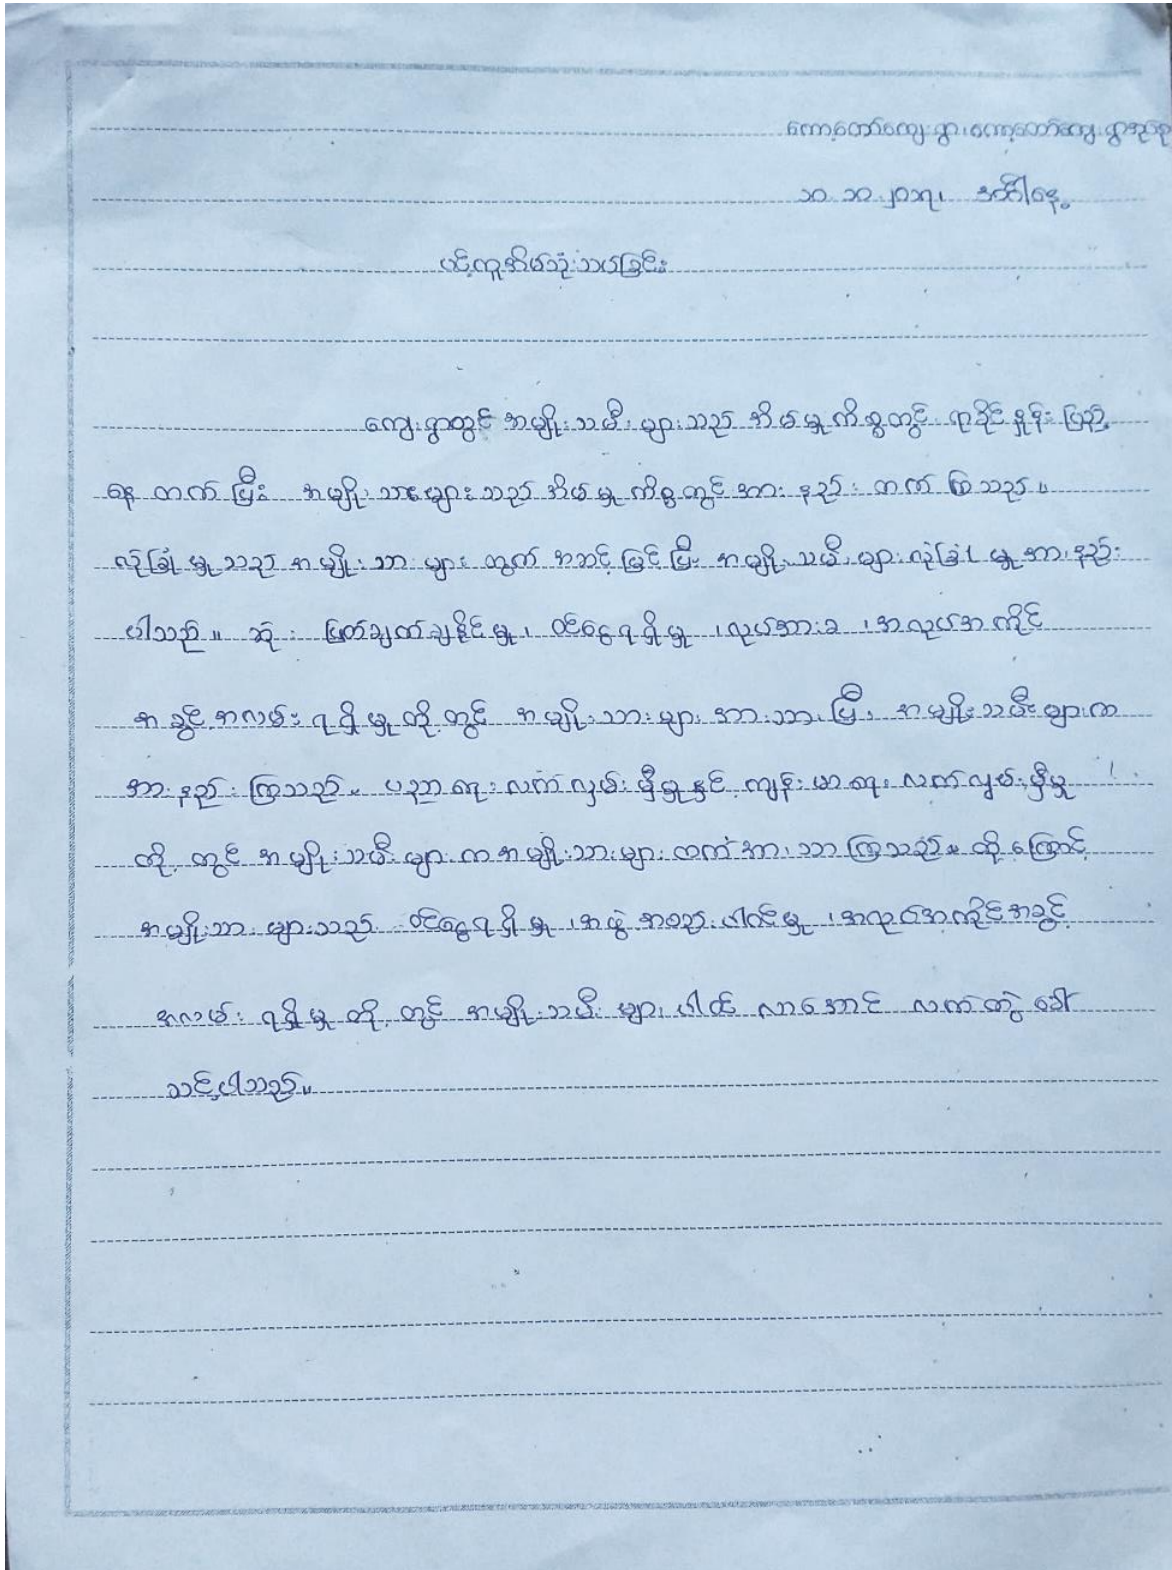 ကော့တော်ကျေးရွာ၊ကော့တော်ကျေးရွာအုပ်စု
၁၁.၁၁.၂၀၁၇၊ အင်္ဂါနေ့
ပင့်ကူအိမ်သုံးသပ်ခြင်း
ကျေးရွာတွင် အမျိုးသမီးများသည် အိမ်မှုကိစ္စတွင် ရာခိုင်နှုန်းပြည့်
နေ တက်ပြီး အမျိုးသားများသည် အိမ်မှုကိစ္စတွင် အားနည်း တက်ကြသည်။
လုံခြုံမှုသည် အမျိုးသားများတွက် အဆင့်မြင့်ပြီး အမျိုးသမီးများလုံခြုံမှုအားနည်း
ပါသည်။ ဆုံးဖြတ်ချက်ချနိုင်မှု၊ ဝင်ငွေရရှိမှု၊လုပ်အားခ၊အလုပ်အကိုင်
အခွင့်အလမ်းရရှိမှုတို့တွင် အမျိုးသားများအားသာပြီး အမျိုးသမီးများက
အားနည်းကြသည်။ ပညာရေးလက်လှမ်းမှီမှုနှင့် ကျန်းမာရေးလက်လှမ်းမှီမှု
တို့တွင် အမျိုးသမီးများက အမျိုးသားများထက်အားသာကြသည်။ ထို့ကြောင့်
အမျိုးသားများသည် ဝင်ငွေရရှိမှု၊အဖွဲ့အစည်းပါဝင်မှု၊အလုပ်အကိုင်အခွင့်
အလမ်းရရှိမှုတို့တွင် အမျိုးသမီးများပါဝင်လာအောင် လက်တွဲခေါ်
သင့်ပါသည်။